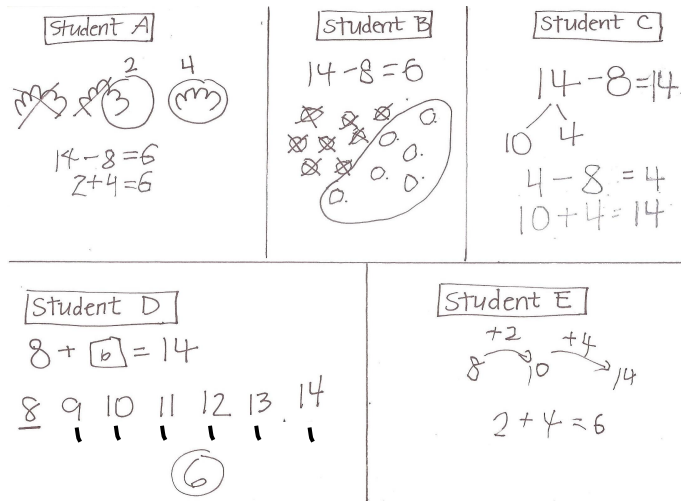 Student A
2 4
14 - 8 = 6
2 + 4 = 6
Student B
14 - 8 = 6
Student C
14 - 8 = 14
10 4
4 - 8 = 4
10 + 4 = 14
Student D
8 + 6 = 14
8 9 10 11 12 13 . 14
6
Student E
+2 +4
8 10 14
2 + 4 = 6